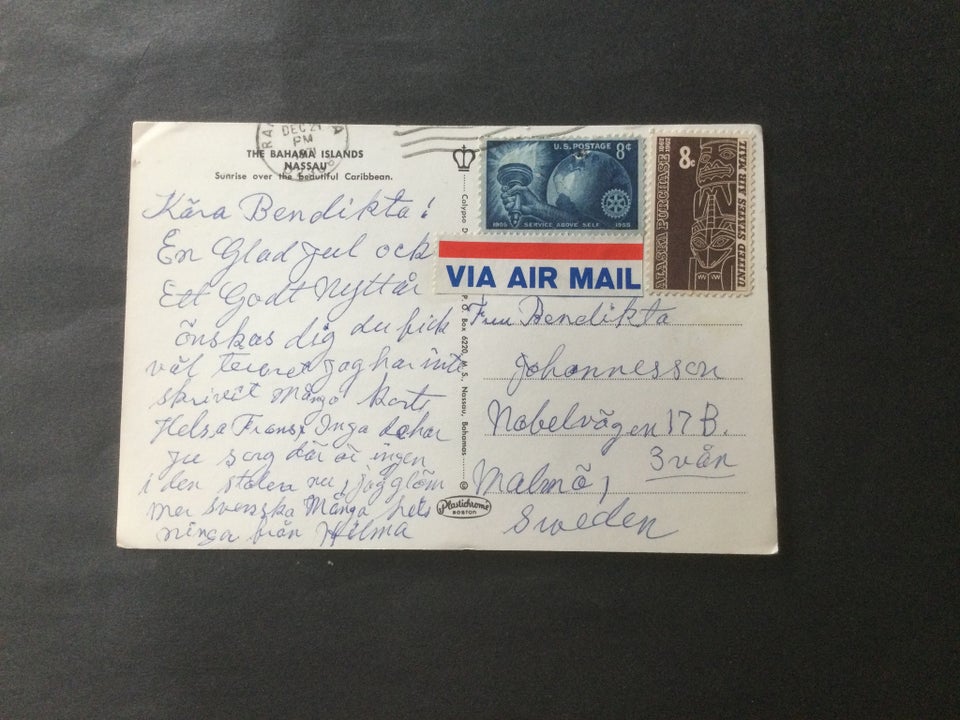 DEC 21
PM
THE BAHAMA ISLANDS
NASSAU
Sunrise over the beautiful Caribbean.
Kära Bendikta!
En Glad Jul ock
Ett Godt Nyttår
önskas dig du fick
väl jag har inte
skrivit Många kort
Helsa Frans Inga de har
ju sorg där är ingen
i den stolen nu, jag glöm
mer Svenska Många hels
ninga från Hilma
Calypso
P. O. Box 6220, M. S., Nassau, Bahamas
©
Plastichrome
BOSTON
U.S. POSTAGE 8¢
1905 SERVICE ABOVE SELF 1955
8¢
ALASKA PURCHASE
UNITED STATES AIR MAIL
VIA AIR MAIL
Fru Bendikta
Johannesson
Nobelvägen 17 B.
3 vån
Malmö,
Sweden